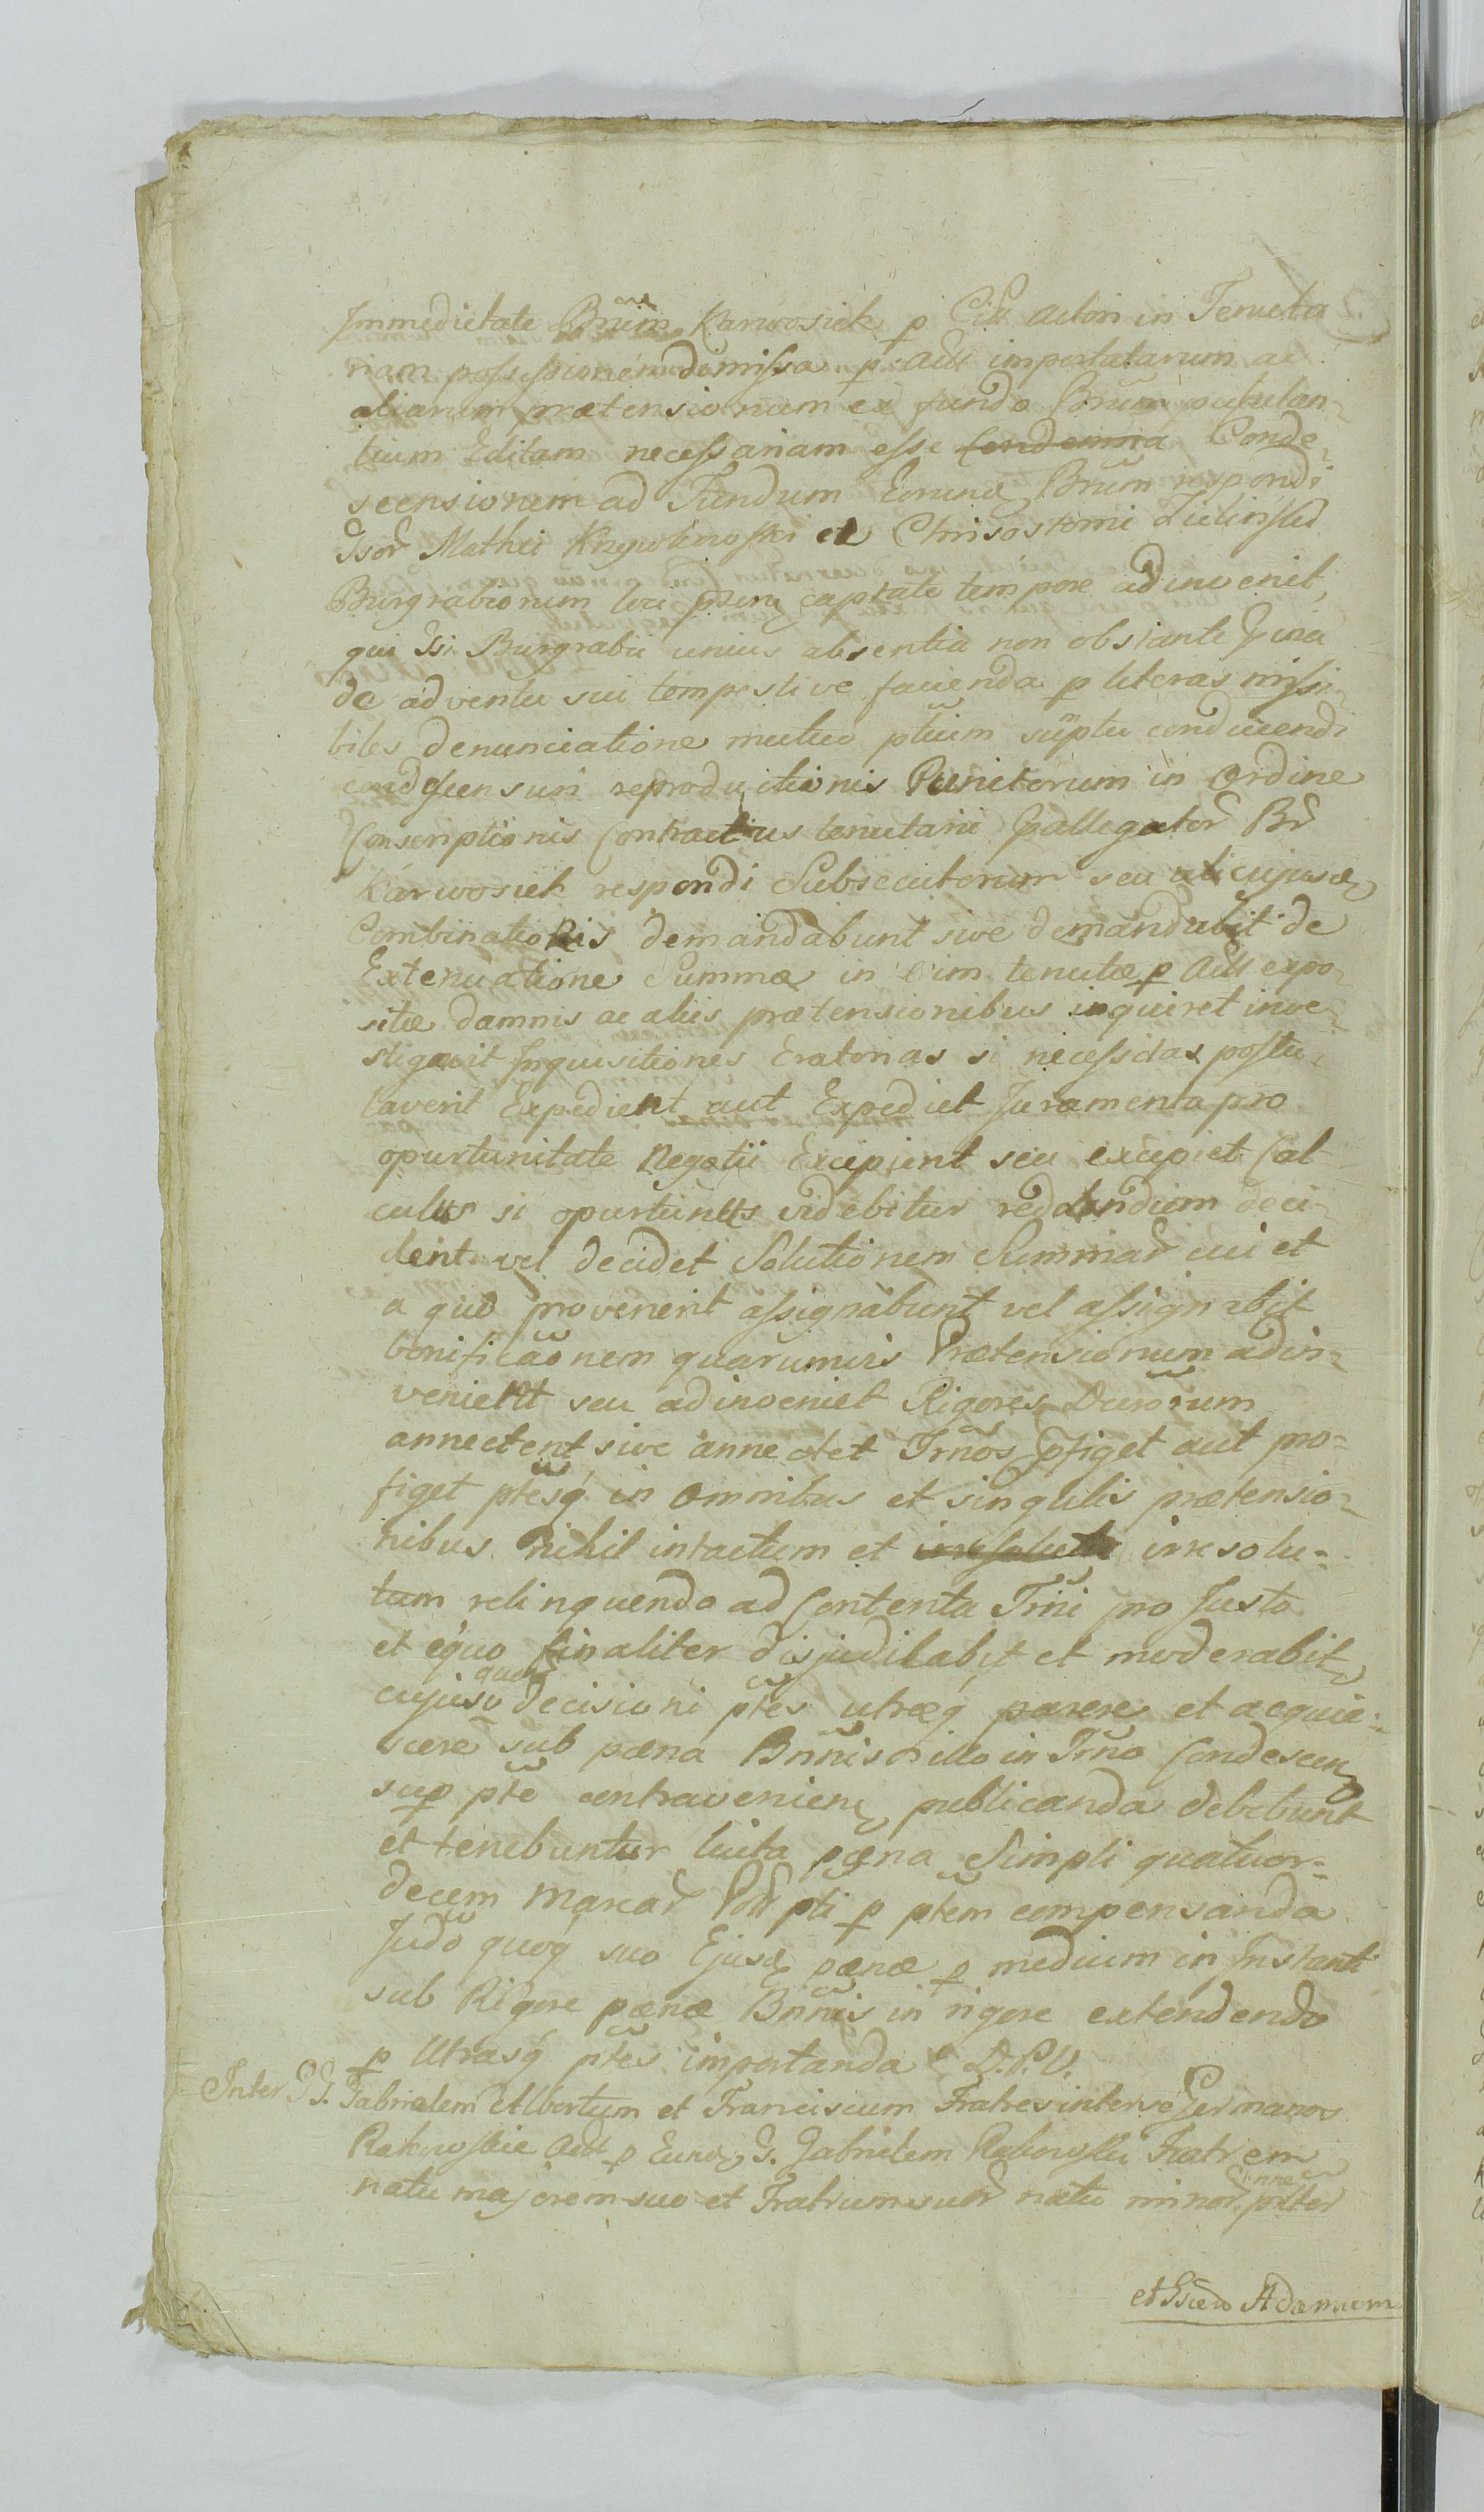 Immedietate Bnum Karwosiek p Citt Actori in Tenuta
riam possessionem dimissa p Actt importatarum ac
aliarum prætensionum ex fundo Bnum pusulan¬
tium Editam necessariam esse Condemna Conde¬
scensionem ad Fundum Eorund Bnum respondi
Gsor Mathei Krzywkowski et Chrisostomi Zielinski
Burgrabiorum loci psen captato tempore adinvenit,
qui Gsi Burgrabii unius absentia non obstante
de adventu sui tempestive facienda p literas missi¬
biles denunciatione mutuo ptium sumptu conducendi
condescensuri reproductionis Punctorum in ordine
Conscriptionis Contractus tenutarii Pallegator Br
Karwosiek respondi Subsecutorum seu alicujusq
Combinationis demandabunt sive demandabit de
Extenuatione Summæ in vim tenutæ p Actt expo¬
sitæ damnis ac aliis prætensionibus inquiret inve¬
stigavit Inquisitiones Eratorias si necessitas postu¬
laverit Expedient aut Expediet Juramenta pro
opurtunitate Negotii Excipient seu excipiet Cal
culus si opurtunus videbitur reddendum deci¬
dent vel decidet Solutionem Summar cui et
a quo provenerit assignabunt vel assignabit
bonificaonem quarumvis Prætensionum adin¬
venient seu adinveniet Rigores Decrorum
annectent sive annectet Trnos Pfiget aut pro=
figet ptesq in omnibus et singulis prætensio¬
nibus nihil intactum et irresolutu irresolu=
tum relinquendo ad Contenta Trni pro Justo
et equo finaliter disjudicabit et moderabit
cujusv quor decisioni ptes utræq parere et acquie=
scere sub pæna Bnnis illo in Trno Condescen
sup pte contravenien publicanda debebunt
et tenebuntur luita pæna Simpli quatuor=
decem Marcar Poll pti p ptem compensanda
Judo quoq suo Ejusd pænæ p medium in Instanti
sub Rigore pænæ Bnnis in rigore extendendo
p Utrasq ptes importanda D. P. V.
Inter GG. Gabrielem Albertum et Franciscum Fratres inter se Germanos
Rakowskie Actt p Eund G. Gabrielem Rakowski Fratrem
natu majorem suo et Fratrum suor natu minor nne
et Gsum Adamum